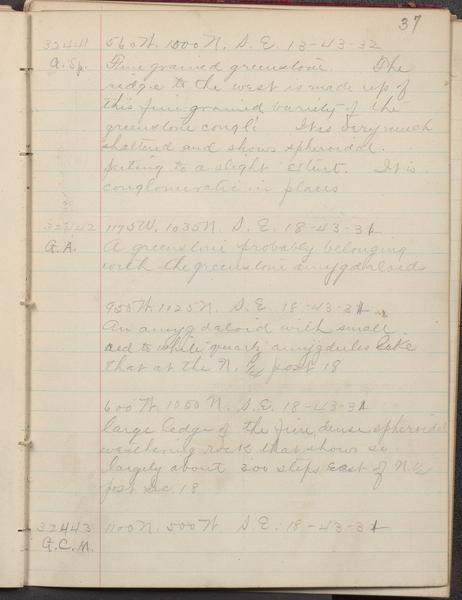 37
32441 560W. 1500N, S. E. 13-43-32
A. Sp. Fine grained greenstone. The
ridge to the west is made up of
this fine grained variety of the
greenstone congl. It is very much
shattered and shows spheroidal
parting to a slight extent. It is
conglomeratic in places
32442 1175W. 1035N. S. E. 18-43-31
G.A. A greenstone probably belonging
with the greenstone amygdaloids
950W. 1125N. S. E. 18-43-31
An amygdaloid with small
red to white quartz amygdules like
that at the N. post 18
600W. 1050N. S. E. 18-43-31
large ledge of the fine, dense spheroidal
weathering rock that shows so
largely about 300 steps East of N.
post Sec. 18
32443 1100N. 500W. S E. 18-43-31
G.C.M.